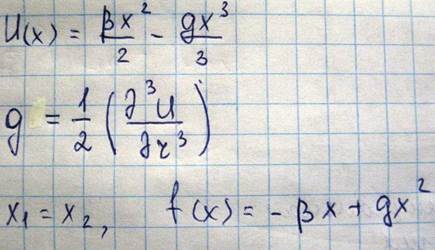 U(x) = βx²/2 - gx³/3
g = 1/2 (∂³U/∂r³)
x₁ = x₂, f(x) = -βx + gx²